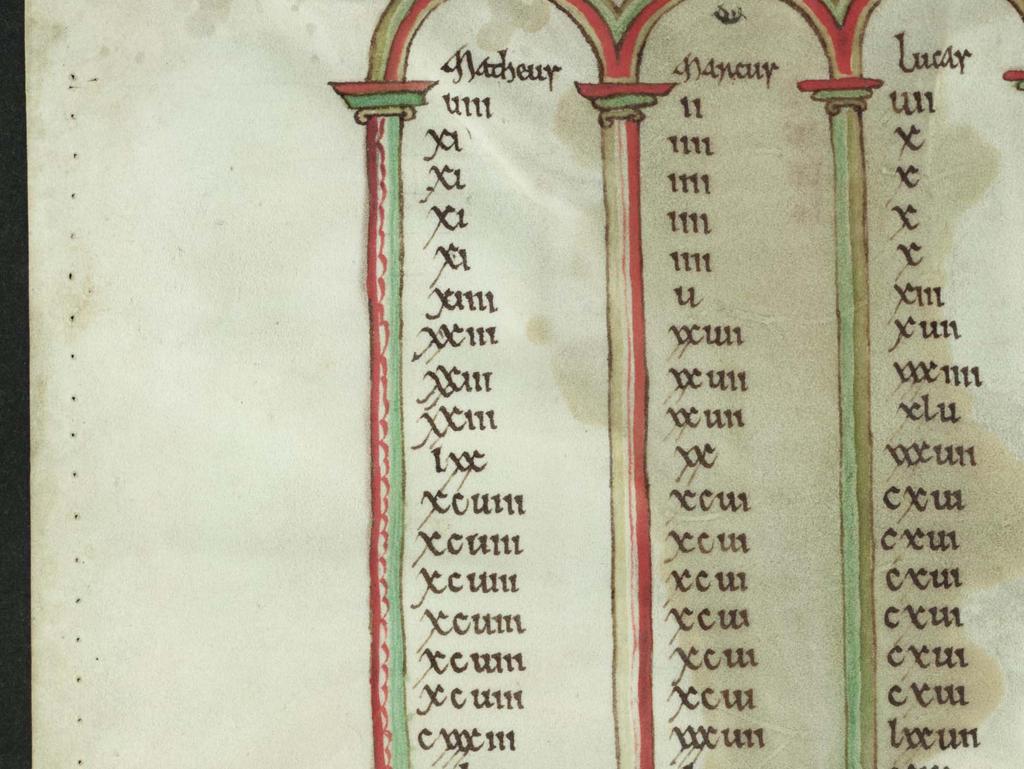 Matheus Marcus Lucas
uiii ii uii
xi iiii x
xi iiii x
xi iiii x
xi iiii x
xiiii u xiii
xxiii xxuii xuii
xxiii xxuii xxxiiii
xxiii xxuii xlu
lxx xx xxxuii
xcuiii xcui cxui
xcuiii xcui cxui
xcuiii xcui cxui
xcuiii xcui cxui
xcuiii xcui cxui
xcuiii xcui cxui
cxxxiii xxxuii lxxuii